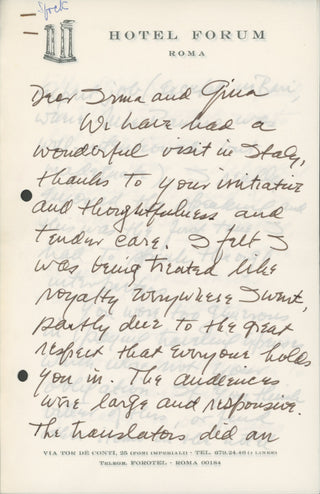 Spok
HOTEL FORUM
ROMA
Dear Irma and Gina
We have had a
wonderful visit in Italy,
thanks to your initiative
and thoughtfulness and
tender care. I felt I
was being treated like
royalty everywhere I went,
partly due to the great
respect that everyone holds
you in. The audiences
were large and responsive.
The translators did an
VIA TOR DE CONTI, 25 (FORI IMPERIALI) - TEL. 679.24.46 (5 LINEE)
TELEGR. FOROTEL - ROMA 00184